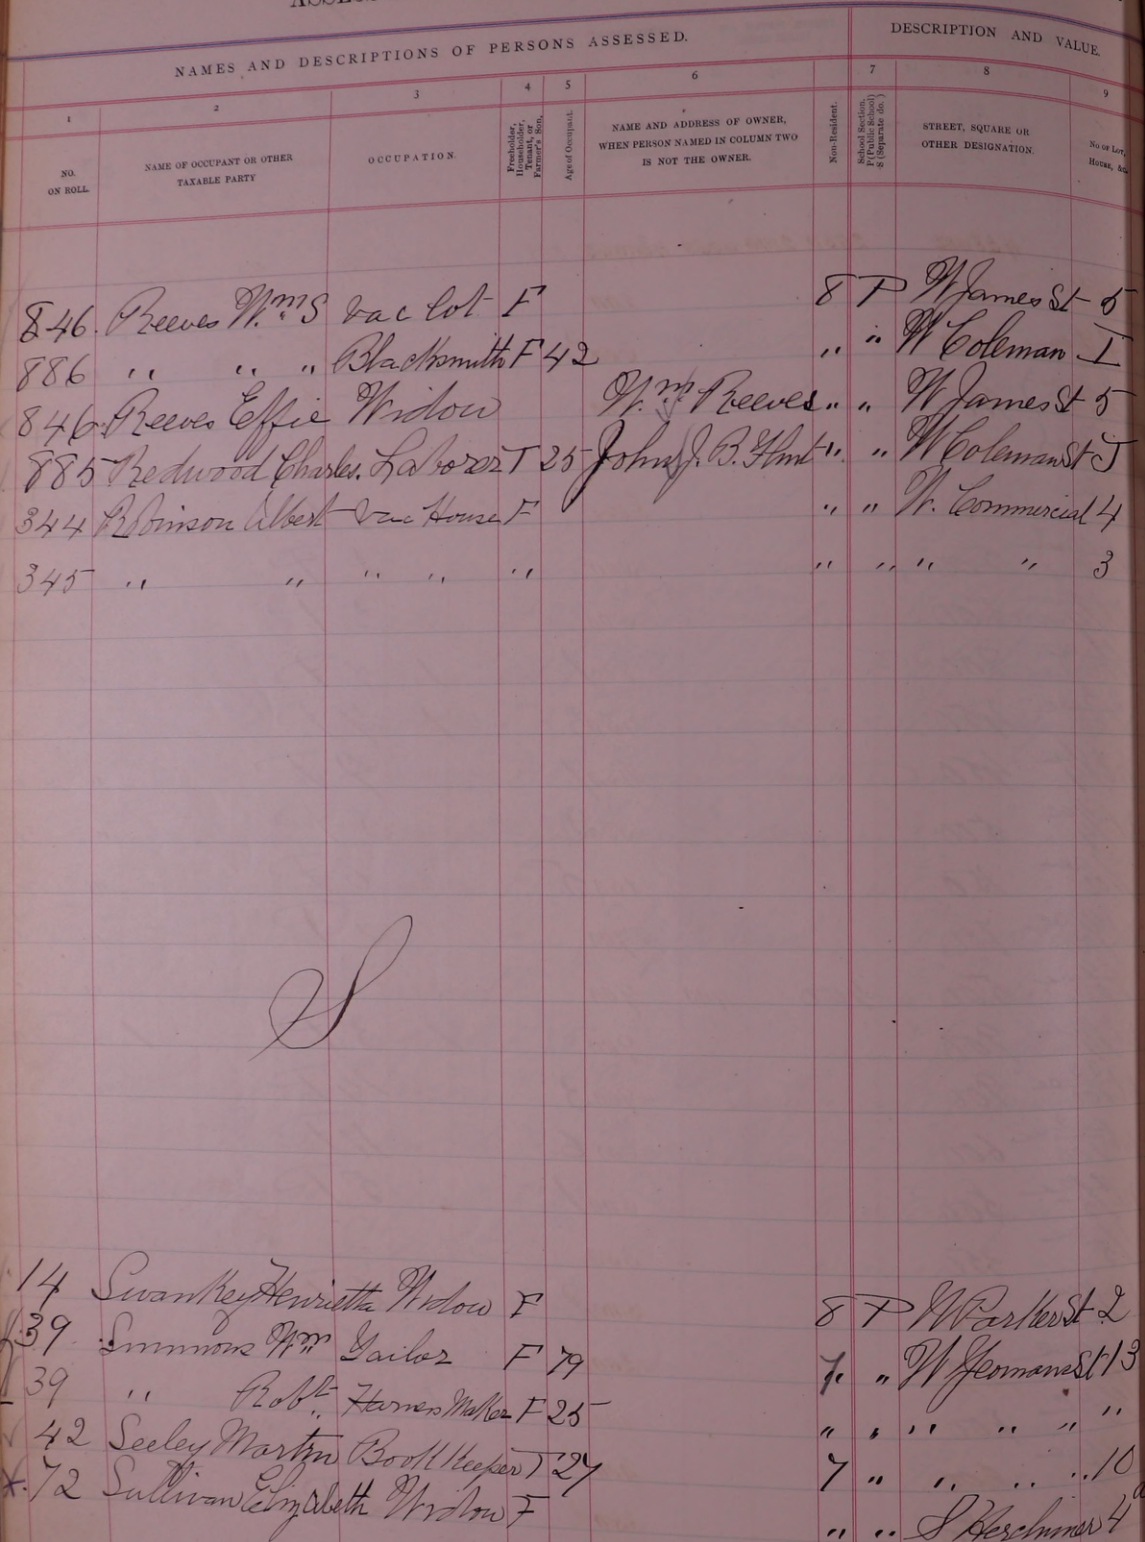 NAMES AND DESCRIPTIONS OF PERSONS ASSESSED. DESCRIPTION AND VALUE.
1 2 3 4 5 6 7 8 9
NO. ON ROLL. NAME OF OCCUPANT OR OTHER TAXABLE PARTY OCCUPATION. Freeholder, Householder, Tenant, or Farmer's Son. Age of Occupant. NAME AND ADDRESS OF OWNER, WHEN PERSON NAMED IN COLUMN TWO IS NOT THE OWNER. Non-Resident. School Section. P (Public School) S (Separate do.) STREET, SQUARE OR OTHER DESIGNATION. No of Lot, House, &c.
846. Reeves Wm. S Vac lot F 8 P W James St 5
886 " " " Blacksmith F 42 " " W Coleman I
846 Reeves Effie Widow Wm. Reeves " " W James St 5
885 Redwood Charles. Laborer T 25 John J. B. Flint " " W Coleman St J
344 Robinson Albert Vac House F " " W. Commercial 4
345 " " " " " " " " " 3
S
14 Swankey Henrietta Widow F 8 P W Parker St 2
39 Simmons Wm Tailor F 79 7. " W Yeomans St 13
39 " Robt. Harness Maker F 25 " " " " " "
42 Seeley Martin Book Keeper T 27 7 " " " " 10
72 Sullivan Elizabeth Widow F " " S Herchimer 4